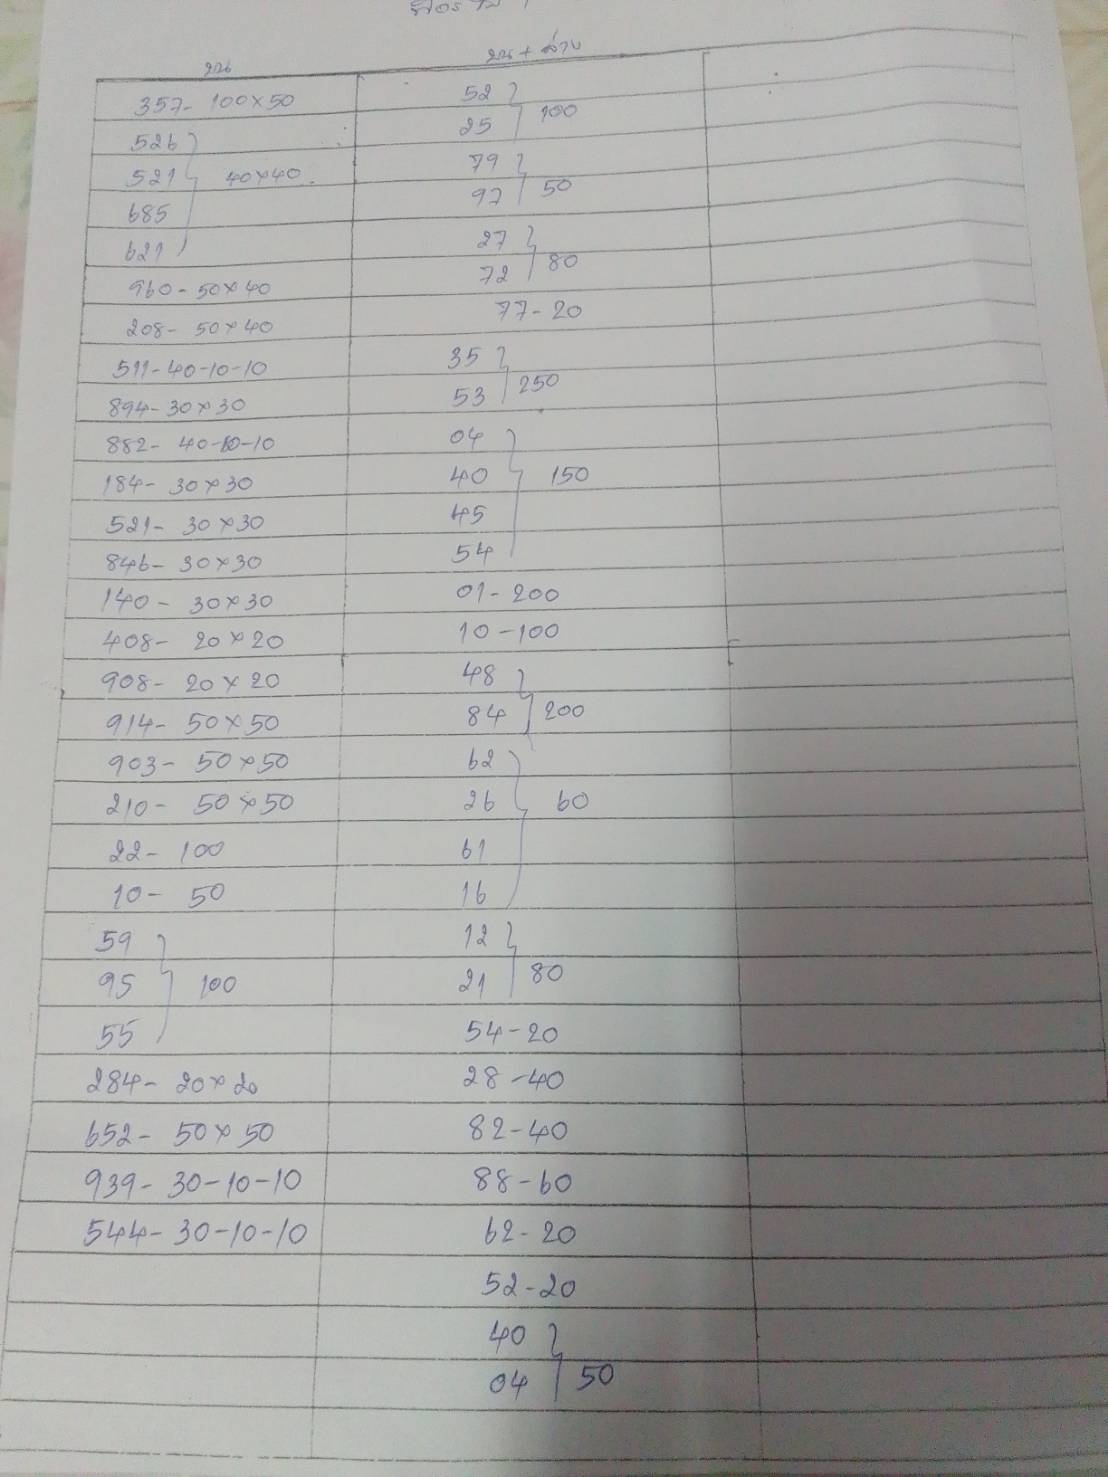 บน
357- 100×50
526
521 40×40
685
621
960-50×40
208- 50×40
511-40-10-10
894-30×30
882- 40-10-10
184- 30×30
521- 30×30
846- 30×30
140- 30×30
408- 20×20
908- 20×20
914- 50×50
903- 50×50
210- 50×50
22- 100
10- 50
59
95 100
55
284- 20×20
652- 50×50
939- 30-10-10
544- 30-10-10
บน+ล่าง
52
25 100
79
97 50
27
72 80
77-20
35
53 250
04
40 150
45
54
01-200
10-100
48
84 200
62
26 60
61
16
12
21 80
54-20
28-40
82-40
88-60
62-20
52-20
40
04 50